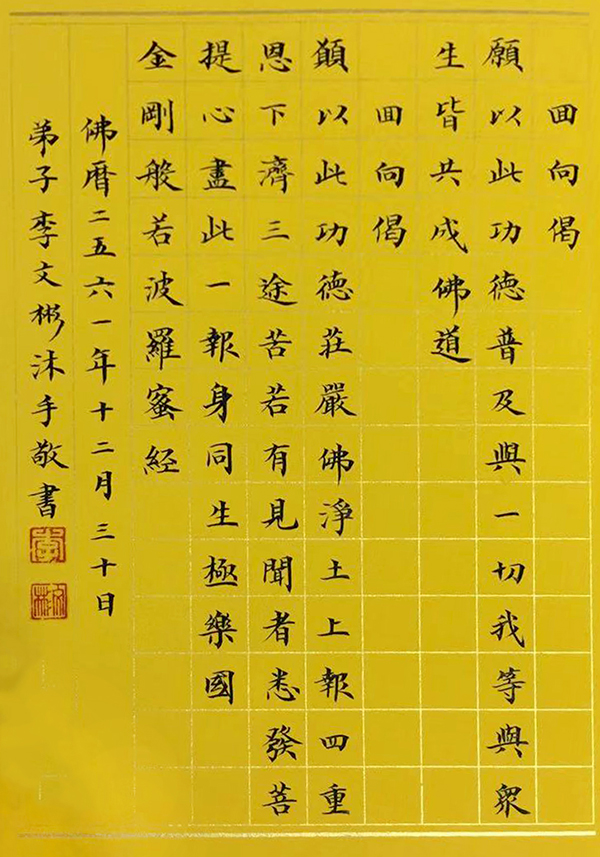 回向偈
願以此功德普及與一切我等與眾
生皆共成佛道
回向偈
願以此功德莊嚴佛淨土上報四重
恩下濟三途苦若有見聞者悉發菩
提心盡此一報身同生極樂國
金剛般若波羅蜜經
佛曆二五六一年十二月三十日
弟子李文彬沐手敬書